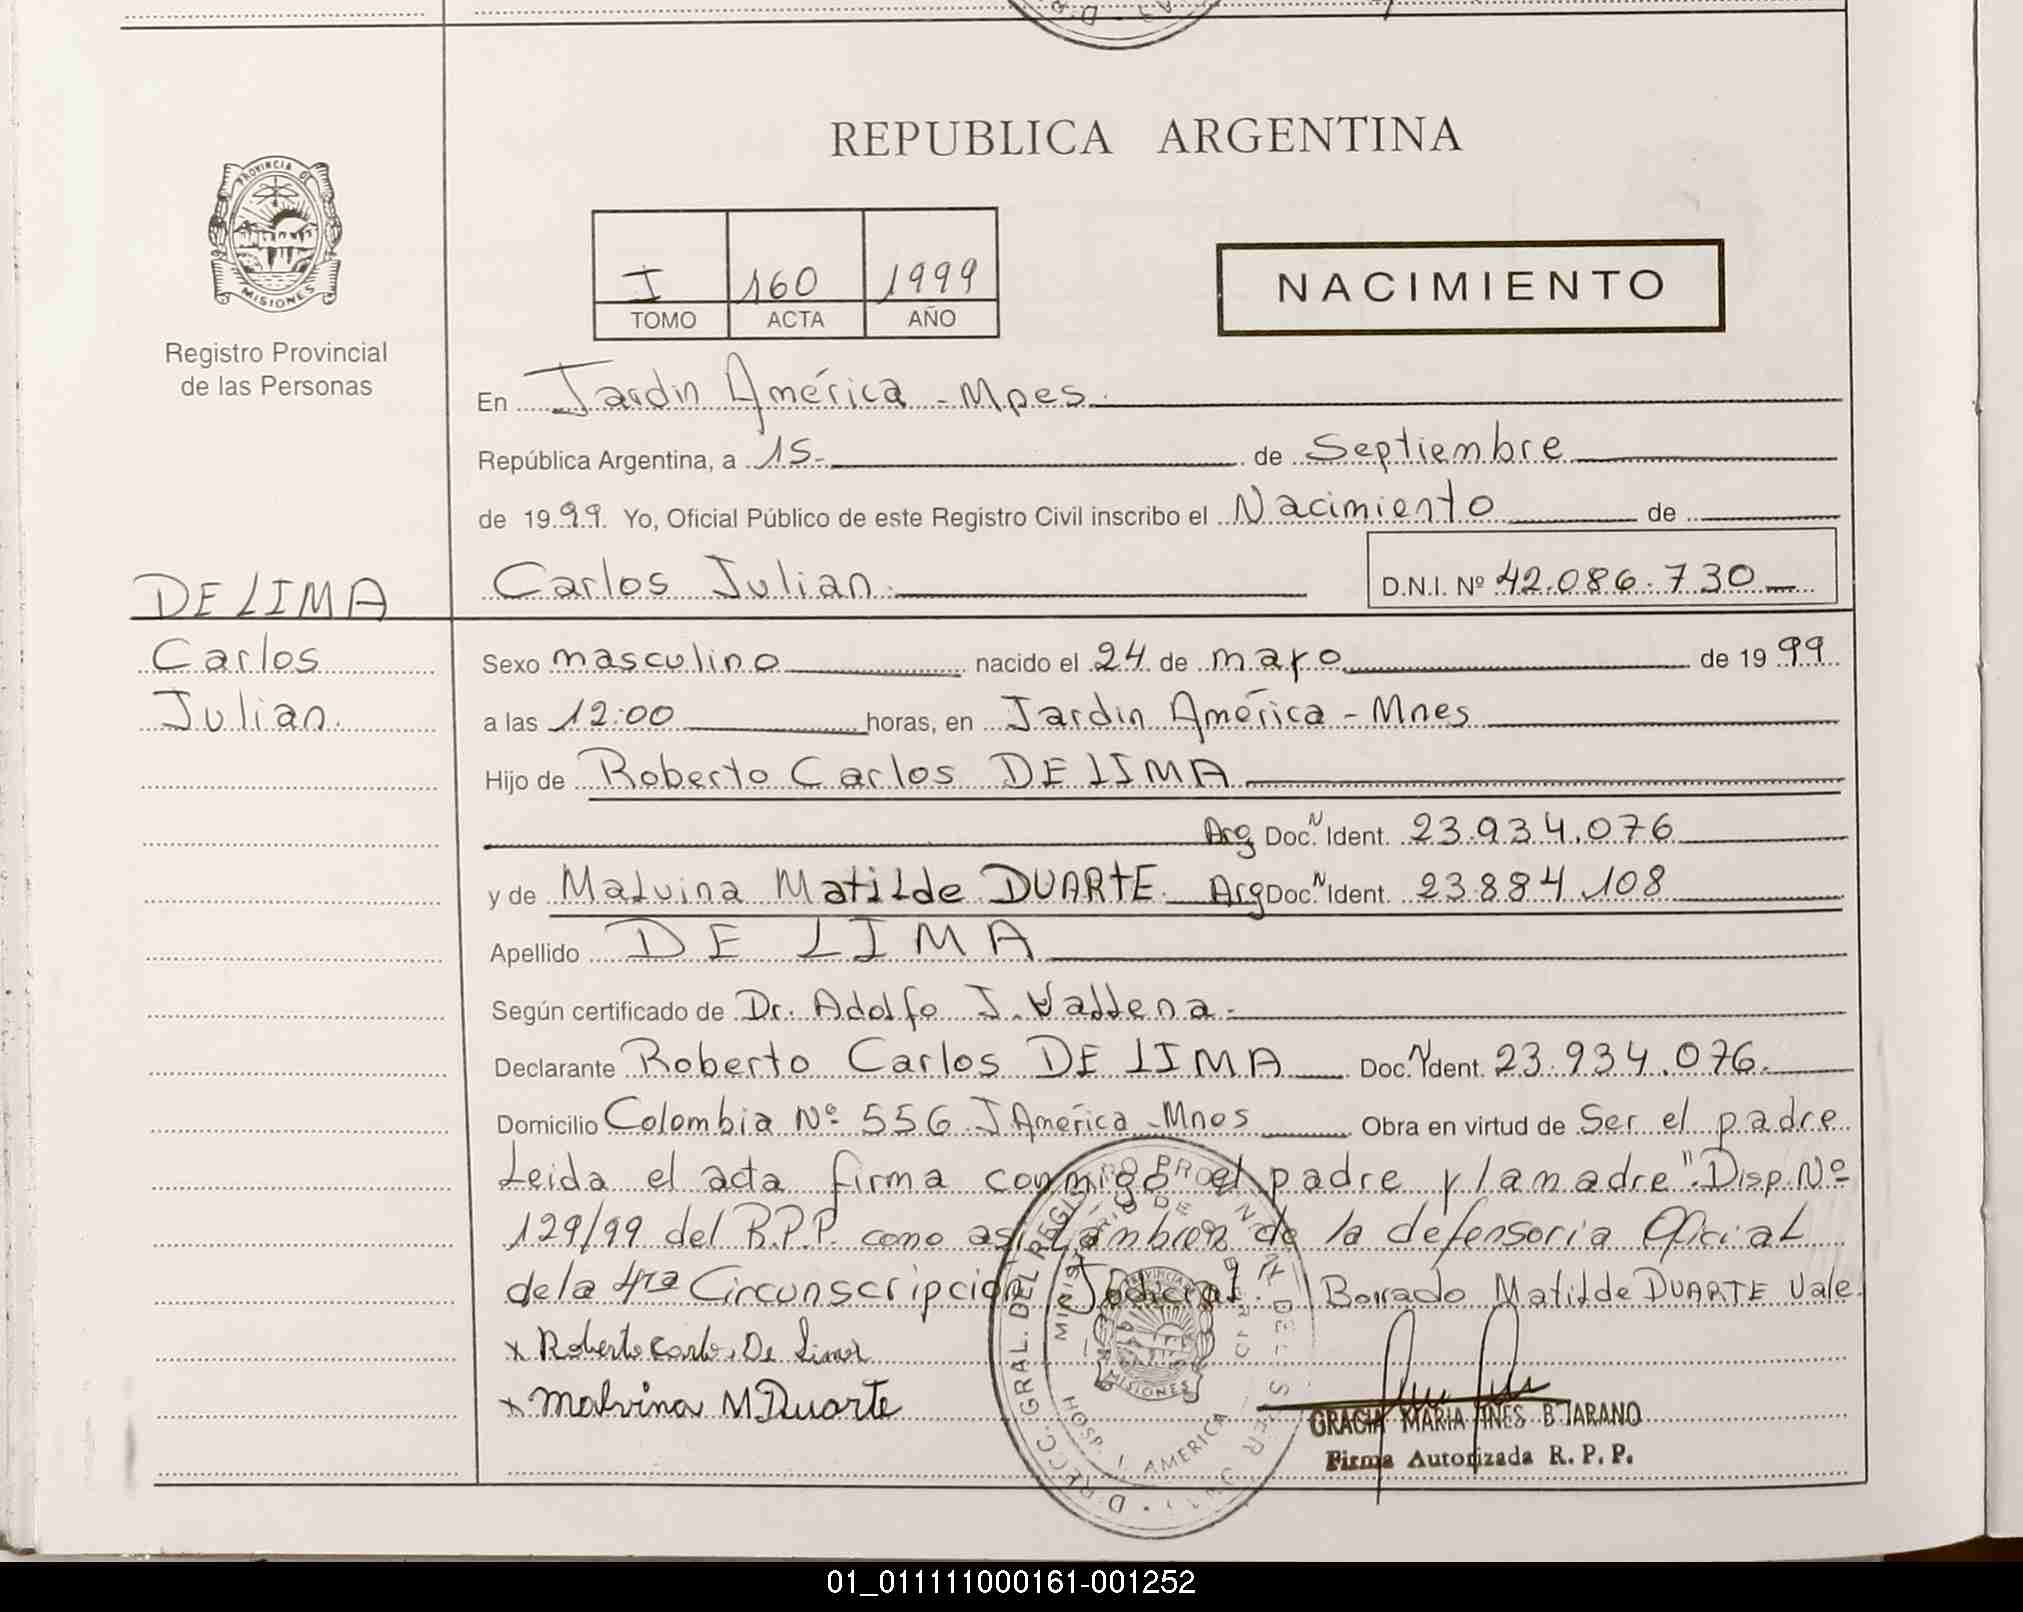 REPUBLICA ARGENTINA
PROVINCIA DE
MISIONES
Registro Provincial
de las Personas
I 160 1999
TOMO ACTA AÑO
NACIMIENTO
En Jardin América - Mnes.
República Argentina, a 15 de Septiembre
de 1999. Yo, Oficial Público de este Registro Civil inscribo el Nacimiento de
Carlos Julian. D.N.I. Nº 42.086.730
DE LIMA
Carlos
Julian.
Sexo masculino nacido el 24 de mayo de 1999
a las 12:00 horas, en Jardin América - Mnes
Hijo de Roberto Carlos DE LIMA
Arg Doc. N Ident. 23.934.076
y de Malvina Matilde DUARTE. Arg Doc. N Ident. 23.884.108
Apellido DE LIMA
Según certificado de Dr. Adolfo J.
Declarante Roberto Carlos DE LIMA Doc. N Ident. 23.934.076.
Domicilio Colombia Nº 556 J. América - Mnes Obra en virtud de Ser el padre
Leida el acta firma conmigo el padre y la madre". Disp. Nº
129/99 del R.P.P. como asi tambien de la defensoria Oficial
de la 4ta Circunscripción Judicial. Borrado Matilde DUARTE Vale.
x Roberto Carlos De Lima
x Malvina M Duarte
GRACIA MARIA INES B TARANO
Firma Autorizada R. P. P.
01_011111000161-001252